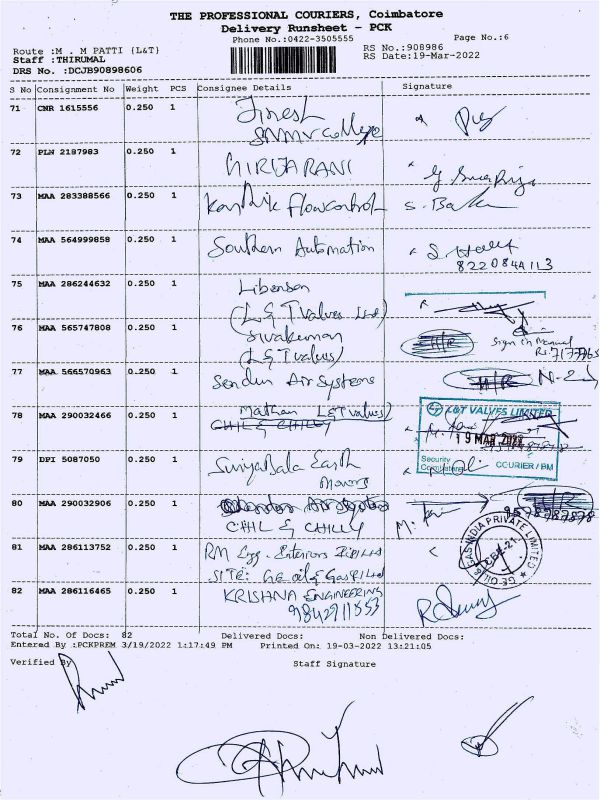 THE PROFESSIONAL COURIERS, Coimbatore
Delivery Runsheet - PCK
Phone No.:0422-3505555
Page No.:6
Route :M . M PATTI (L&T)
RS No.:908986
Staff :THIRUMAL
RS Date:19-Mar-2022
DRS No. :DCJB90898606
S No Consignment No Weight PCS Consignee Details Signature
71 CNR 1615556 0.250 1 Jinesh
SNMV College
72 PLN 2187983 0.250 1 GIRIJA RANI
73 MAA 283388566 0.250 1 Karthik Flowcontrol
74 MAA 564999858 0.250 1 Southern Automation
75 MAA 286244632 0.250 1
(L&T valves Ltd)
76 MAA 565747808 0.250 1 Sivakumar
(L&T valves)
H/R Sign in Manual
77 MAA 566570963 0.250 1 Sendur Air Systems
H/R
78 MAA 290032466 0.250 1 Mathan L&T valves)
CHIL & CHILLY
L&T VALVES LIMITED
19 MAR 2022
Security
Coimbatore COURIER / BM
79 DPI 5087050 0.250 1 SuryaBala Earth
Movers
80 MAA 290032906 0.250 1
CHIL & CHILLY
H/R
81 MAA 286113752 0.250 1 RM Egg. Interiors
SITE: GE oil & Gas P Ltd
GE OIL & GAS INDIA PRIVATE LIMITED
82 MAA 286116465 0.250 1 KRISHNA ENGINEERING
9842911553
Total No. Of Docs: 82 Delivered Docs: Non Delivered Docs:
Entered By :PCKPREM 3/19/2022 1:17:49 PM Printed On: 19-03-2022 13:21:05
Verified By
Staff Signature